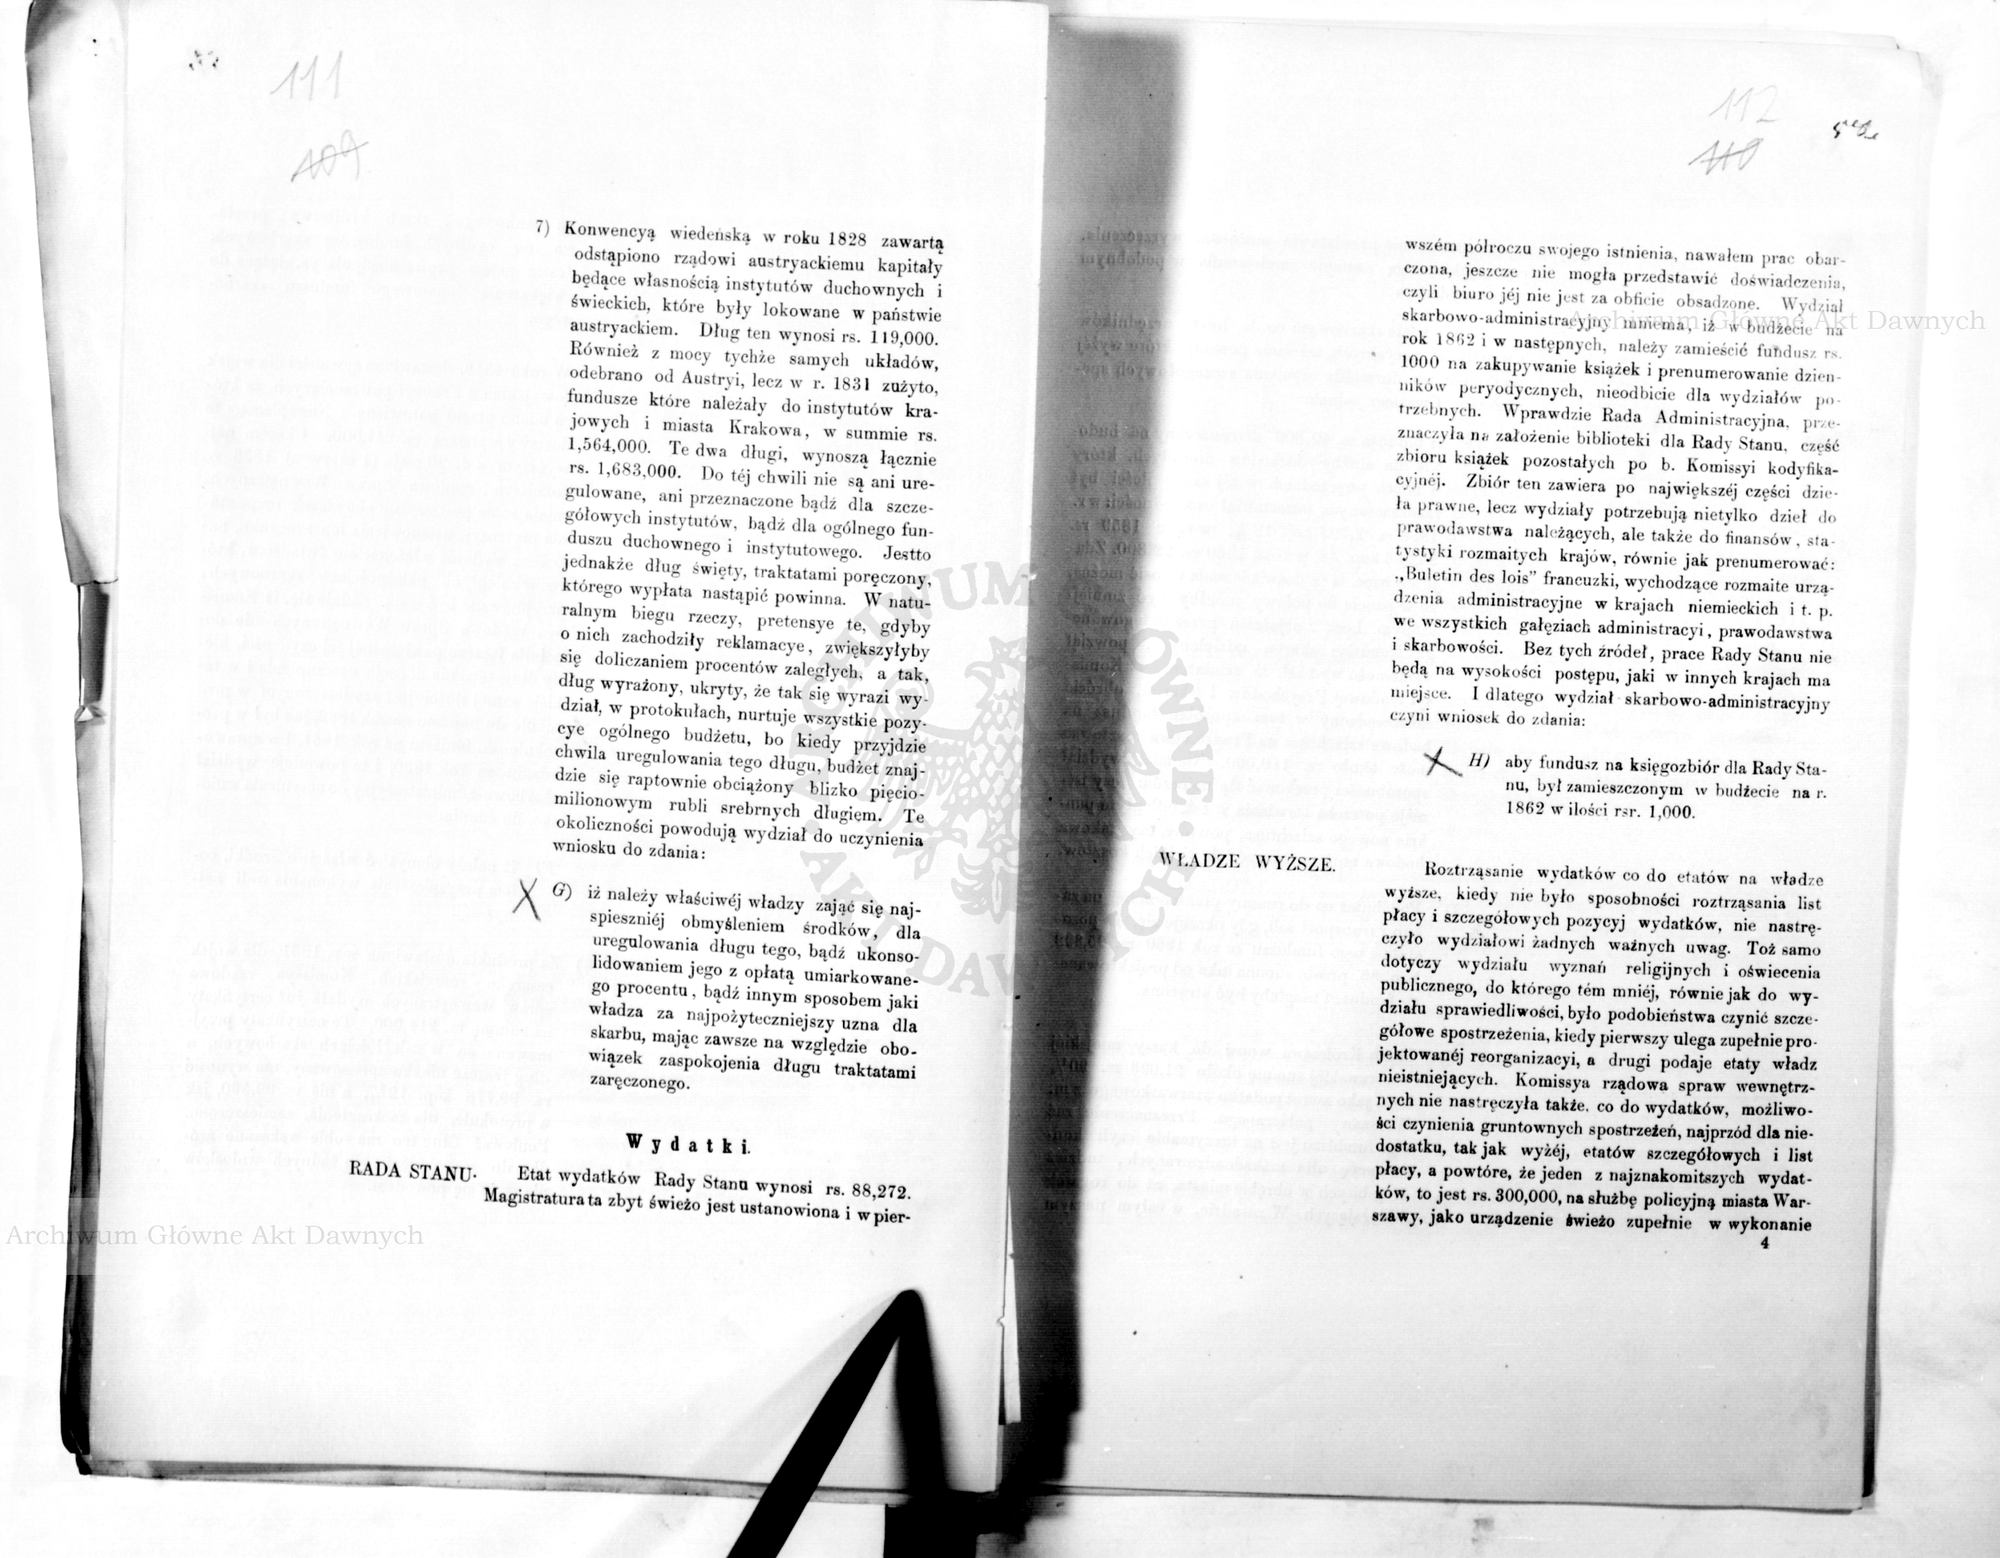 111
109
7) Konwencyą wiedeńską w roku 1828 zawartą
odstąpiono rządowi austryackiemu kapitały
będące własnością instytutów duchownych i
świeckich, które były lokowane w państwie
austryackiem. Dług ten wynosi rs. 119,000.
Również z mocy tychże samych układów,
odebrano od Austryi, lecz w r. 1831 zużyto,
fundusze które należały do instytutów kra-
jowych i miasta Krakowa, w summie rs.
1,564,000. Te dwa długi, wynoszą łącznie
rs. 1,683,000. Do téj chwili nie są ani ure-
gulowane, ani przeznaczone bądź dla szcze-
gółowych instytutów, bądź dla ogólnego fun-
duszu duchownego i instytutowego. Jestto
jednakże dług święty, traktatami poręczony,
którego wypłata nastąpić powinna. W natu-
ralnym biegu rzeczy, pretensye te, gdyby
o nich zachodziły reklamacye, zwiększyłyby
się doliczaniem procentów zaległych, a tak,
dług wyrażony, ukryty, że tak się wyrazi wy-
dział, w protokułach, nurtuje wszystkie pozy-
cye ogólnego budżetu, bo kiedy przyjdzie
chwila uregulowania tego długu, budżet znaj-
dzie się raptownie obciążony blizko pięcio-
milionowym rubli srebrnych długiem. Te
okoliczności powodują wydział do uczynienia
wniosku do zdania:
G) iż należy właściwéj władzy zająć się naj-
spieszniéj obmyśleniem środków, dla
uregulowania długu tego, bądź ukonso-
lidowaniem jego z opłatą umiarkowane-
go procentu, bądź innym sposobem jaki
władza za najpożyteczniejszy uzna dla
skarbu, mając zawsze na względzie obo-
wiązek zaspokojenia długu traktatami
zaręczonego.
Wydatki.
RADA STANU. Etat wydatków Rady Stanu wynosi rs. 88,272.
Magistratura ta zbyt świeżo jest ustanowiona i w pier-
112
110
wszém półroczu swojego istnienia, nawałem prac obar-
czona, jeszcze nie mogła przedstawić doświadczenia,
czyli biuro jéj nie jest za obficie obsadzone. Wydział
skarbowo-administracyjny mniema, iż w budżecie na
rok 1862 i w następnych, należy zamieścić fundusz rs.
1000 na zakupywanie książek i prenumerowanie dzien-
ników peryodycznych, nieodbicie dla wydziałów po-
trzebnych. Wprawdzie Rada Administracyjna, prze-
znaczyła na założenie biblioteki dla Rady Stanu, część
zbioru książek pozostałych po b. Komissyi kodyfika-
cyjnéj. Zbiór ten zawiera po największéj części dzie-
ła prawne, lecz wydziały potrzebują nietylko dzieł do
prawodawstwa należących, ale także do finansów, sta-
tystyki rozmaitych krajów, równie jak prenumerować:
„Buletin des lois” francuzki, wychodzące rozmaite urzą-
dzenia administracyjne w krajach niemieckich i t. p.
we wszystkich gałęziach administracyi, prawodawstwa
i skarbowości. Bez tych źródeł, prace Rady Stanu nie
będą na wysokości postępu, jaki w innych krajach ma
miejsce. I dlatego wydział skarbowo-administracyjny
czyni wniosek do zdania:
H) aby fundusz na księgozbiór dla Rady Sta-
nu, był zamieszczonym w budżecie na r.
1862 w ilości rsr. 1,000.
WŁADZE WYŻSZE. Roztrząsanie wydatków co do etatów na władze
wyższe, kiedy nie było sposobności roztrząsania list
płacy i szczegółowych pozycyj wydatków, nie nastrę-
czyło wydziałowi żadnych ważnych uwag. Toż samo
dotyczy wydziału wyznań religijnych i oświecenia
publicznego, do którego tém mniéj, równie jak do wy-
działu sprawiedliwości, było podobieństwa czynić szcze-
gółowe spostrzeżenia, kiedy pierwszy ulega zupełnie pro-
jektowanéj reorganizacyi, a drugi podaje etaty władz
nieistniejących. Komissya rządowa spraw wewnętrz-
nych nie nastręczyła także, co do wydatków, możliwo-
ści czynienia gruntownych spostrzeżeń, najprzód dla nie-
dostatku, tak jak wyżéj, etatów szczegółowych i list
płacy, a powtóre, że jeden z najznakomitszych wydat-
ków, to jest rs. 300,000, na służbę policyjną miasta War-
szawy, jako urządzenie świeżo zupełnie w wykonanie
4
Archiwum Główne Akt Dawnych
Archiwum Główne Akt Dawnych
ARCHIWUM GŁÓWNE · AKT DAWNYCH ·